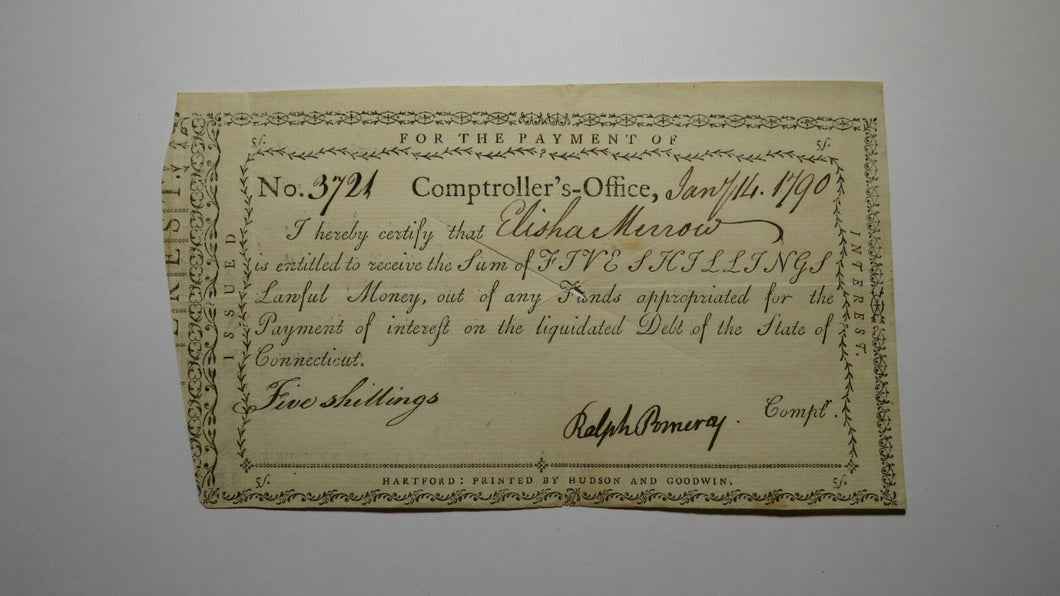 5/. FOR THE PAYMENT OF 5/.
No. 3721 Comptroller's-Office, Jany 14. 1790
I hereby certify that Elisha Merrow
is entitled to receive the Sum of FIVE SHILLINGS
Lawful Money, out of any Funds appropriated for the
Payment of intereſt on the liquidated Debt of the State of
Connecticut.
Five shillings
Ralph Pomeroy. Comptr.
5/. HARTFORD: PRINTED BY HUDSON AND GOODWIN. 5/.
ISSUED
INTEREST.